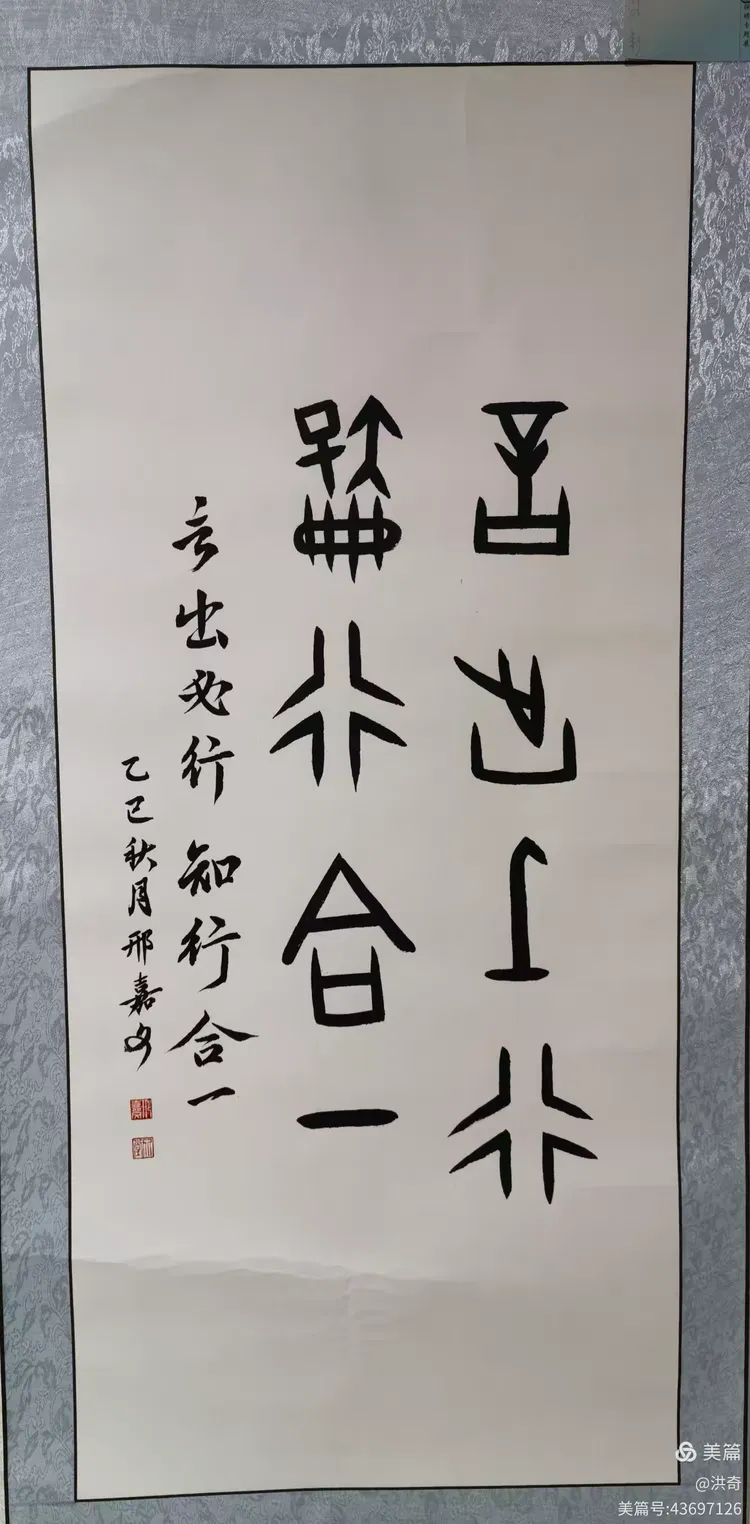 言出必行
知行合一
言出必行知行合一
乙巳秋月邢嘉
美篇
@洪奇
美篇号:43697126